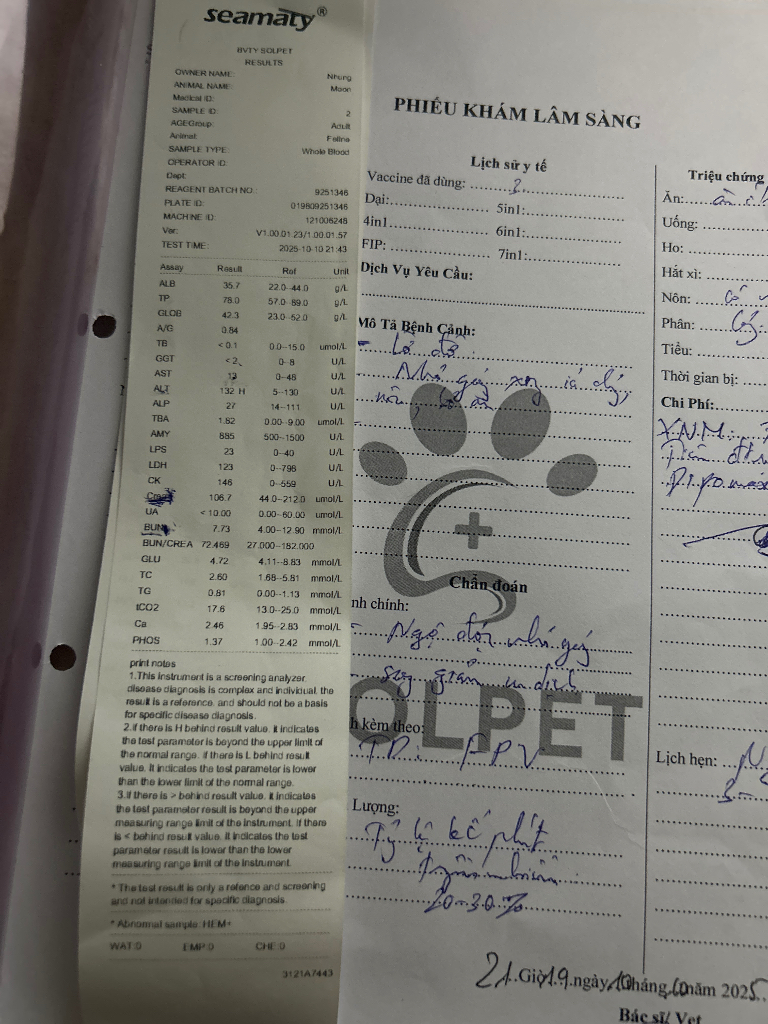 seamaty®
BVTY SOLPET
RESULTS
OWNER NAME: Nhung
ANIMAL NAME: Moon
Medical ID:
SAMPLE ID: 2
AGEGroup: Adult
Animal: Feline
SAMPLE TYPE: Whole Blood
OPERATOR ID:
Dept:
REAGENT BATCH NO.: 9251346
PLATE ID: 019809251346
MACHINE ID: 121006248
Ver: V1.00.01.23/1.00.01.57
TEST TIME: 2025-10-10 21:43
Assay Result Ref Unit
ALB 35.7 22.0--44.0 g/L
TP 78.0 57.0--89.0 g/L
GLOB 42.3 23.0--52.0 g/L
A/G 0.84
TB <0.1 0.0--15.0 umol/L
GGT <2 0--8 U/L
AST 0--48 U/L
ALT 132 H 5--130 U/L
ALP 27 14--111 U/L
TBA 1.82 0.00--9.00 umol/L
AMY 885 500--1500 U/L
LPS 23 0--40 U/L
LDH 123 0--798 U/L
CK 146 0--559 U/L
Crea 106.7 44.0--212.0 umol/L
UA <10.00 0.00--60.00 umol/L
BUN 7.73 4.00--12.90 mmol/L
BUN/CREA 72.469 27.000--182.000
GLU 4.72 4.11--8.83 mmol/L
TC 2.60 1.68--5.81 mmol/L
TG 0.81 0.00--1.13 mmol/L
tCO2 17.6 13.0--25.0 mmol/L
Ca 2.46 1.95--2.83 mmol/L
PHOS 1.37 1.00--2.42 mmol/L
print notes
1.This instrument is a screening analyzer,
disease diagnosis is complex and individual, the
result is a reference, and should not be a basis
for specific disease diagnosis.
2.if there is H behind result value, it indicates
the test parameter is beyond the upper limit of
the normal range. if there is L behind result
value. It indicates the test parameter is lower
than the lower limit of the normal range.
3.if there is > behind result value, it indicates
the test parameter result is beyond the upper
measuring range limit of the instrument. If there
is < behind result value. It indicates the test
parameter result is lower than the lower
measuring range limit of the instrument.
* The test result is only a refence and screening
and not intended for specific diagnosis.
* Abnormal sample: HEM+
WAT:0 EMP:0 CHE:0
3121A7443
PHIẾU KHÁM LÂM SÀNG
Lịch sử y tế
Vaccine đã dùng: ?
Dại: 5in1:
4in1 6in1:
FIP: 7in1:
Dịch Vụ Yêu Cầu:
Mô Tả Bệnh Cảnh:
- Lờ đờ
Chẩn đoán
nh chính:
- Ngộ độc
h kèm theo:
TD: FPV
SOLPET
Lượng:
Tỷ lệ kế phát
20-30%
21.Giờ19.ngày10tháng10năm 2025
Bác sĩ/ Vet
Triệu chứng
Ăn:
Uống:
Ho:
Hắt xì:
Nôn: có
Phân:
Tiểu:
Thời gian bị:
Chi Phí:
XNM:
Lịch hẹn: